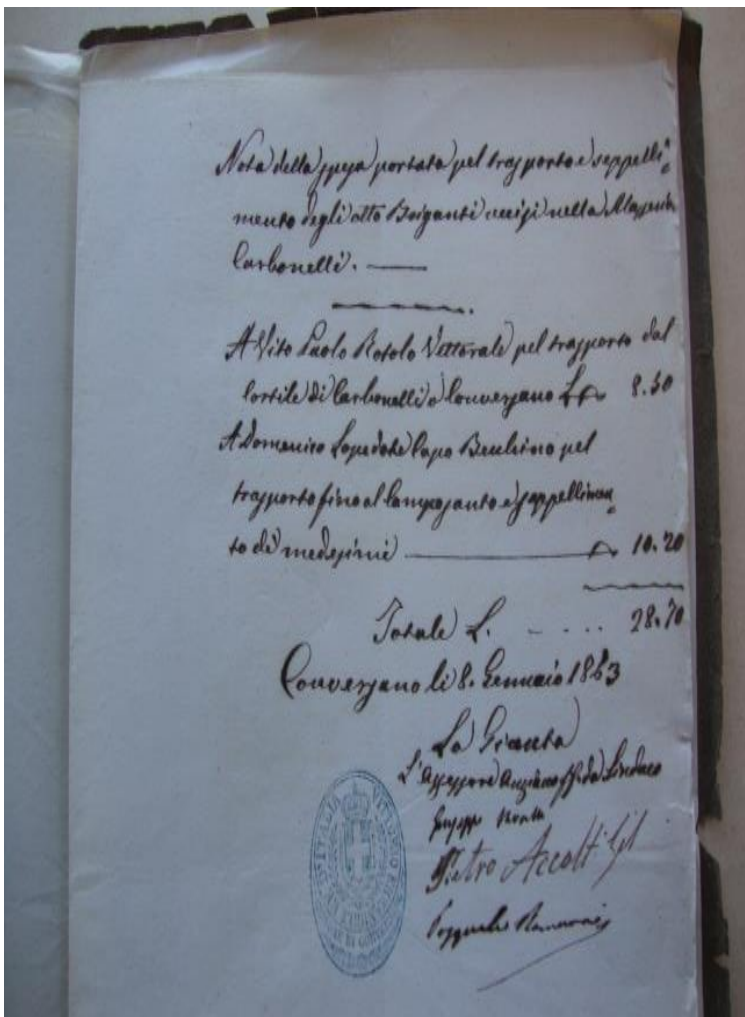 Nota della spesa portata pel trasporto e seppelli=
mento degli otto Briganti uccisi nella Masseria
Carbonelli. —
A Vito Paolo Rotolo Vetturale pel trasporto dal
Cortile di Carbonelli a Conversano L. 8.50
A Domenico Lopedote Capo Becchino pel
trasporto fino al Camposanto e seppellimen=
to di medesimi — 10.20
Totale L. - .... 28.70
Conversano li 8. Gennaio 1863
La Giunta
L'Assessore Anziano ff. da Sindaco
Giuseppe
Pietro Accolti Gil
Pasquale Ramunni